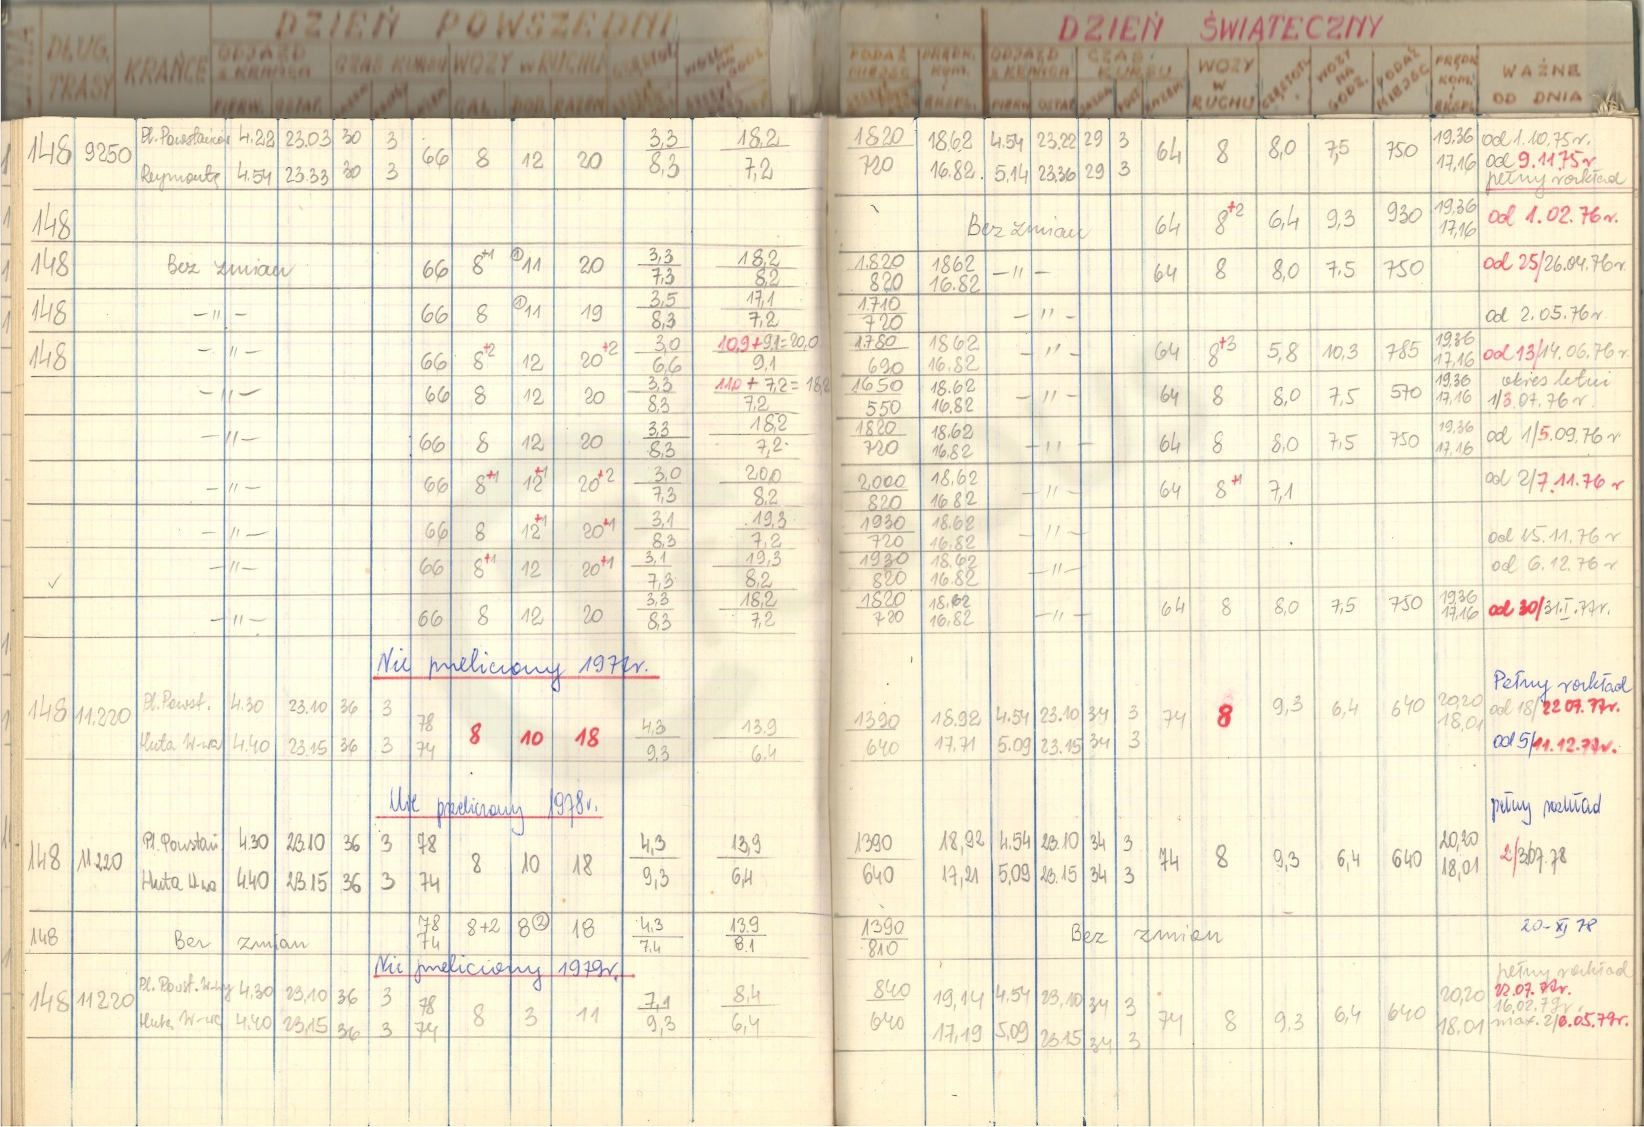 DZIEŃ POWSZEDNI DZIEŃ ŚWIĄTECZNY
DŁUG. TRASY KRAŃCE ODJAZD Z KRAŃCA CZAS KURSU WOZY W RUCHU PODAŻ MIEJSC PRĘDK. KOM. i EKSPL. ODJAZD Z KRAŃCA CZAS KURSU WOZY W RUCHU WOZY NA GODZ. PODAŻ MIEJSC PRĘDK KOM. i EKSPL WAŻNE OD DNIA
PIERW. OSTAT. CAŁ. DOD. RAZEM PIERW OSTAT
148 9250 Pl. Powstańców 4.22 23.03 30 3 66 8 12 20 3,3 18,2 1820 18.62 4.54 23.22 29 3 64 8 8,0 7,5 750 19,36 od 1.10.75r.
Reymonta 4.54 23.33 30 3 8,3 7,2 720 16.82. 5,14 23,36 29 3 17,16 od 9.11.75r
pełny rozkład
148 Bez zmian 64 8+2 6,4 9,3 930 19,36 17,16 od 1.02.76r.
148 Bez zmian 66 8+1 ①11 20 3,3 18,2 1.820 1862 —"— 64 8 8,0 7.5 750 od 25/26.04.76r.
7,3 8,2 820 16.82
148 —"— 66 8 ①11 19 3,5 17,1 1.710 —"— od 2.05.76r
8,3 7,2 720
148 —"— 66 8+2 12 20+2 3,0 10,9+9,1=20,0 1.780 1862 —"— 64 8+3 5,8 10,3 785 19,36 od 13/14.06.76r.
6,6 9,1 690 16.82 17,16
—"— 66 8 12 20 3,3 11,0 + 7,2 = 18,2 1650 18.62 —"— 64 8 8,0 7,5 570 19,36 okres letni
8,3 7,2 550 16.82 17,16 1/3.07.76r.
—"— 66 8 12 20 3,3 18,2 1820 18.62 —"— 64 8 8,0 7,5 750 19,36 od 1/5.09.76r
8,3 7,2 720 16.82 17,16
—"— 66 8+1 12+1 20+2 3,0 20,0 2000 18,62 —"— 64 8+1 7,1 od 2/7.11.76r
7,3 8,2 820 16.82
—"— 66 8 12+1 20+1 3,1 19,3 1930 18.62 —"— od 15.11.76r
8,3 7,2 720 16.82
—"— 66 8+1 12 20+1 3,1 19,3 1930 18.62 —"— od 6.12.76r
7,3 8,2 820 16.82
—"— 66 8 12 20 3,3 18,2 1820 18.62 —"— 64 8 8,0 7,5 750 19,36 od 30/31.I.77r.
8,3 7,2 720 16.82 17,16
Nie przeliczony 1977r.
Pełny rozkład
148 11.220 Pl. Powst. 4.30 23.10 36 3 78 8 10 18 4,3 13,9 1390 18.92 4.54 23.10 34 3 74 8 9,3 6,4 640 20,20 od 18/22.07.77r.
Huta W-wa 4.40 23.15 36 3 74 9,3 6,4 640 17,71 5.09 23.15 34 3 18,01 od 5/11.12.77r.
Nie przeliczony 1978r.
pełny rozkład
148 11220 Pl. Powstań 4.30 23.10 36 3 78 8 10 18 4,3 13,9 1390 18,92 4.54 23.10 34 3 74 8 9,3 6,4 640 20,20 2/3.07.78
Huta W-wa 4.40 23.15 36 3 74 9,3 6,4 640 17,21 5,09 23.15 34 3 18,01
148 Bez zmian 78 8+2 8② 18 4,3 13.9 1390 Bez zmian 20-XI 78
74 7,4 8.1 810
Nie przeliczony 1979r.
pełny rozkład
148 11220 Pl. Powst. W-wy 4.30 23,10 36 3 78 8 3 11 7,1 8,4 840 19,14 4.54 23,10 34 3 74 8 9,3 6,4 640 20,20 22.07.79r.
16.02.79r.
Huta W-wa 4.40 23,15 36 3 74 9,3 6,4 640 17,19 5,09 23.15 34 3 18.01 max. 2/6.05.79r.